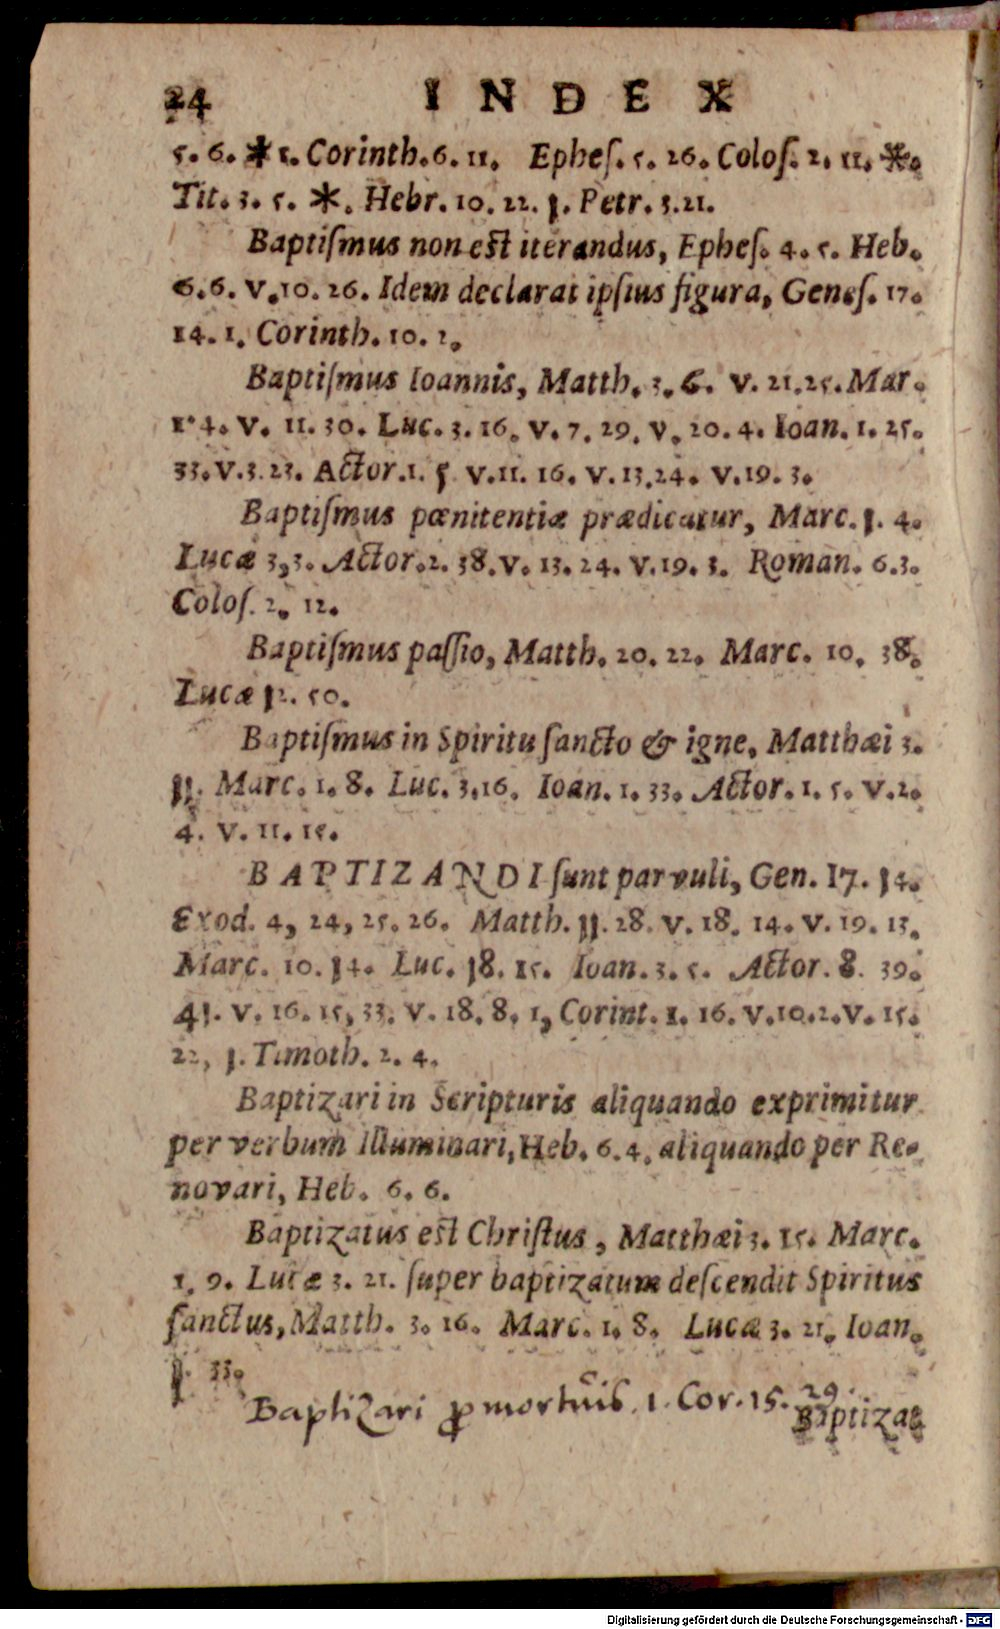 24 INDEX
5. 6. * 1. Corinth. 6. 11. Epheſ. 5. 26. Coloſ. 2. 11. *.
Tit. 3. 5. *. Hebr. 10. 22. 1. Petr. 3. 21.
Baptiſmus non est iterandus, Epheſ. 4. 5. Heb.
6. 6. V. 10. 26. Idem declarat ipſius figura, Geneſ. 17.
14. 1. Corinth. 10. 2.
Baptiſmus Ioannis, Matth. 3. 6. V. 21. 25. Mar.
1. 4. V. 11. 30. Luc. 3. 16. V. 7. 29. V. 20. 4. Ioan. 1. 25.
33. V. 3. 23. Actor. 1. 5 V. 11. 16. V. 13. 24. V. 19. 3.
Baptiſmus pœnitentiæ prædicatur, Marc. 1. 4.
Lucæ 3, 3. Actor. 2. 38. V. 13. 24. V. 19. 3. Roman. 6. 3.
Coloſ. 2. 12.
Baptiſmus paſſio, Matth. 20. 22. Marc. 10. 38.
Lucæ 12. 50.
Baptiſmus in Spiritu ſancto & igne, Matthæi 3.
11. Marc. 1. 8. Luc. 3. 16. Ioan. 1. 33. Actor. 1. 5. V. 2.
4. V. 11. 15.
BAPTIZANDI ſunt parvuli, Gen. 17. 14.
Exod. 4, 24, 25. 26. Matth. 11. 28. V. 18. 14. V. 19. 13.
Marc. 10. 14. Luc. 18. 15. Ioan. 3. 5. Actor. 8. 39.
41. V. 16. 15, 33. V. 18. 8. 1, Corint. 1. 16. V. 10. 2. V. 15.
22, 1. Timoth. 2. 4.
Baptizari in Scripturis aliquando exprimitur
per verbum Illuminari, Heb. 6. 4. aliquando per Re-
novari, Heb. 6. 6.
Baptizatus est Chriſtus, Matthæi 3. 15. Marc.
1. 9. Lucæ 3. 21. ſuper baptizatum deſcendit Spiritus
ſanctus, Matth. 3. 16. Marc. 1. 8. Lucæ 3. 21. Ioan.
1. 33.
Baptizari ꝓ mortuis. 1. Cor. 15. 29.
Baptizat
Digitalisierung gefördert durch die Deutsche Forschungsgemeinschaft - DFG